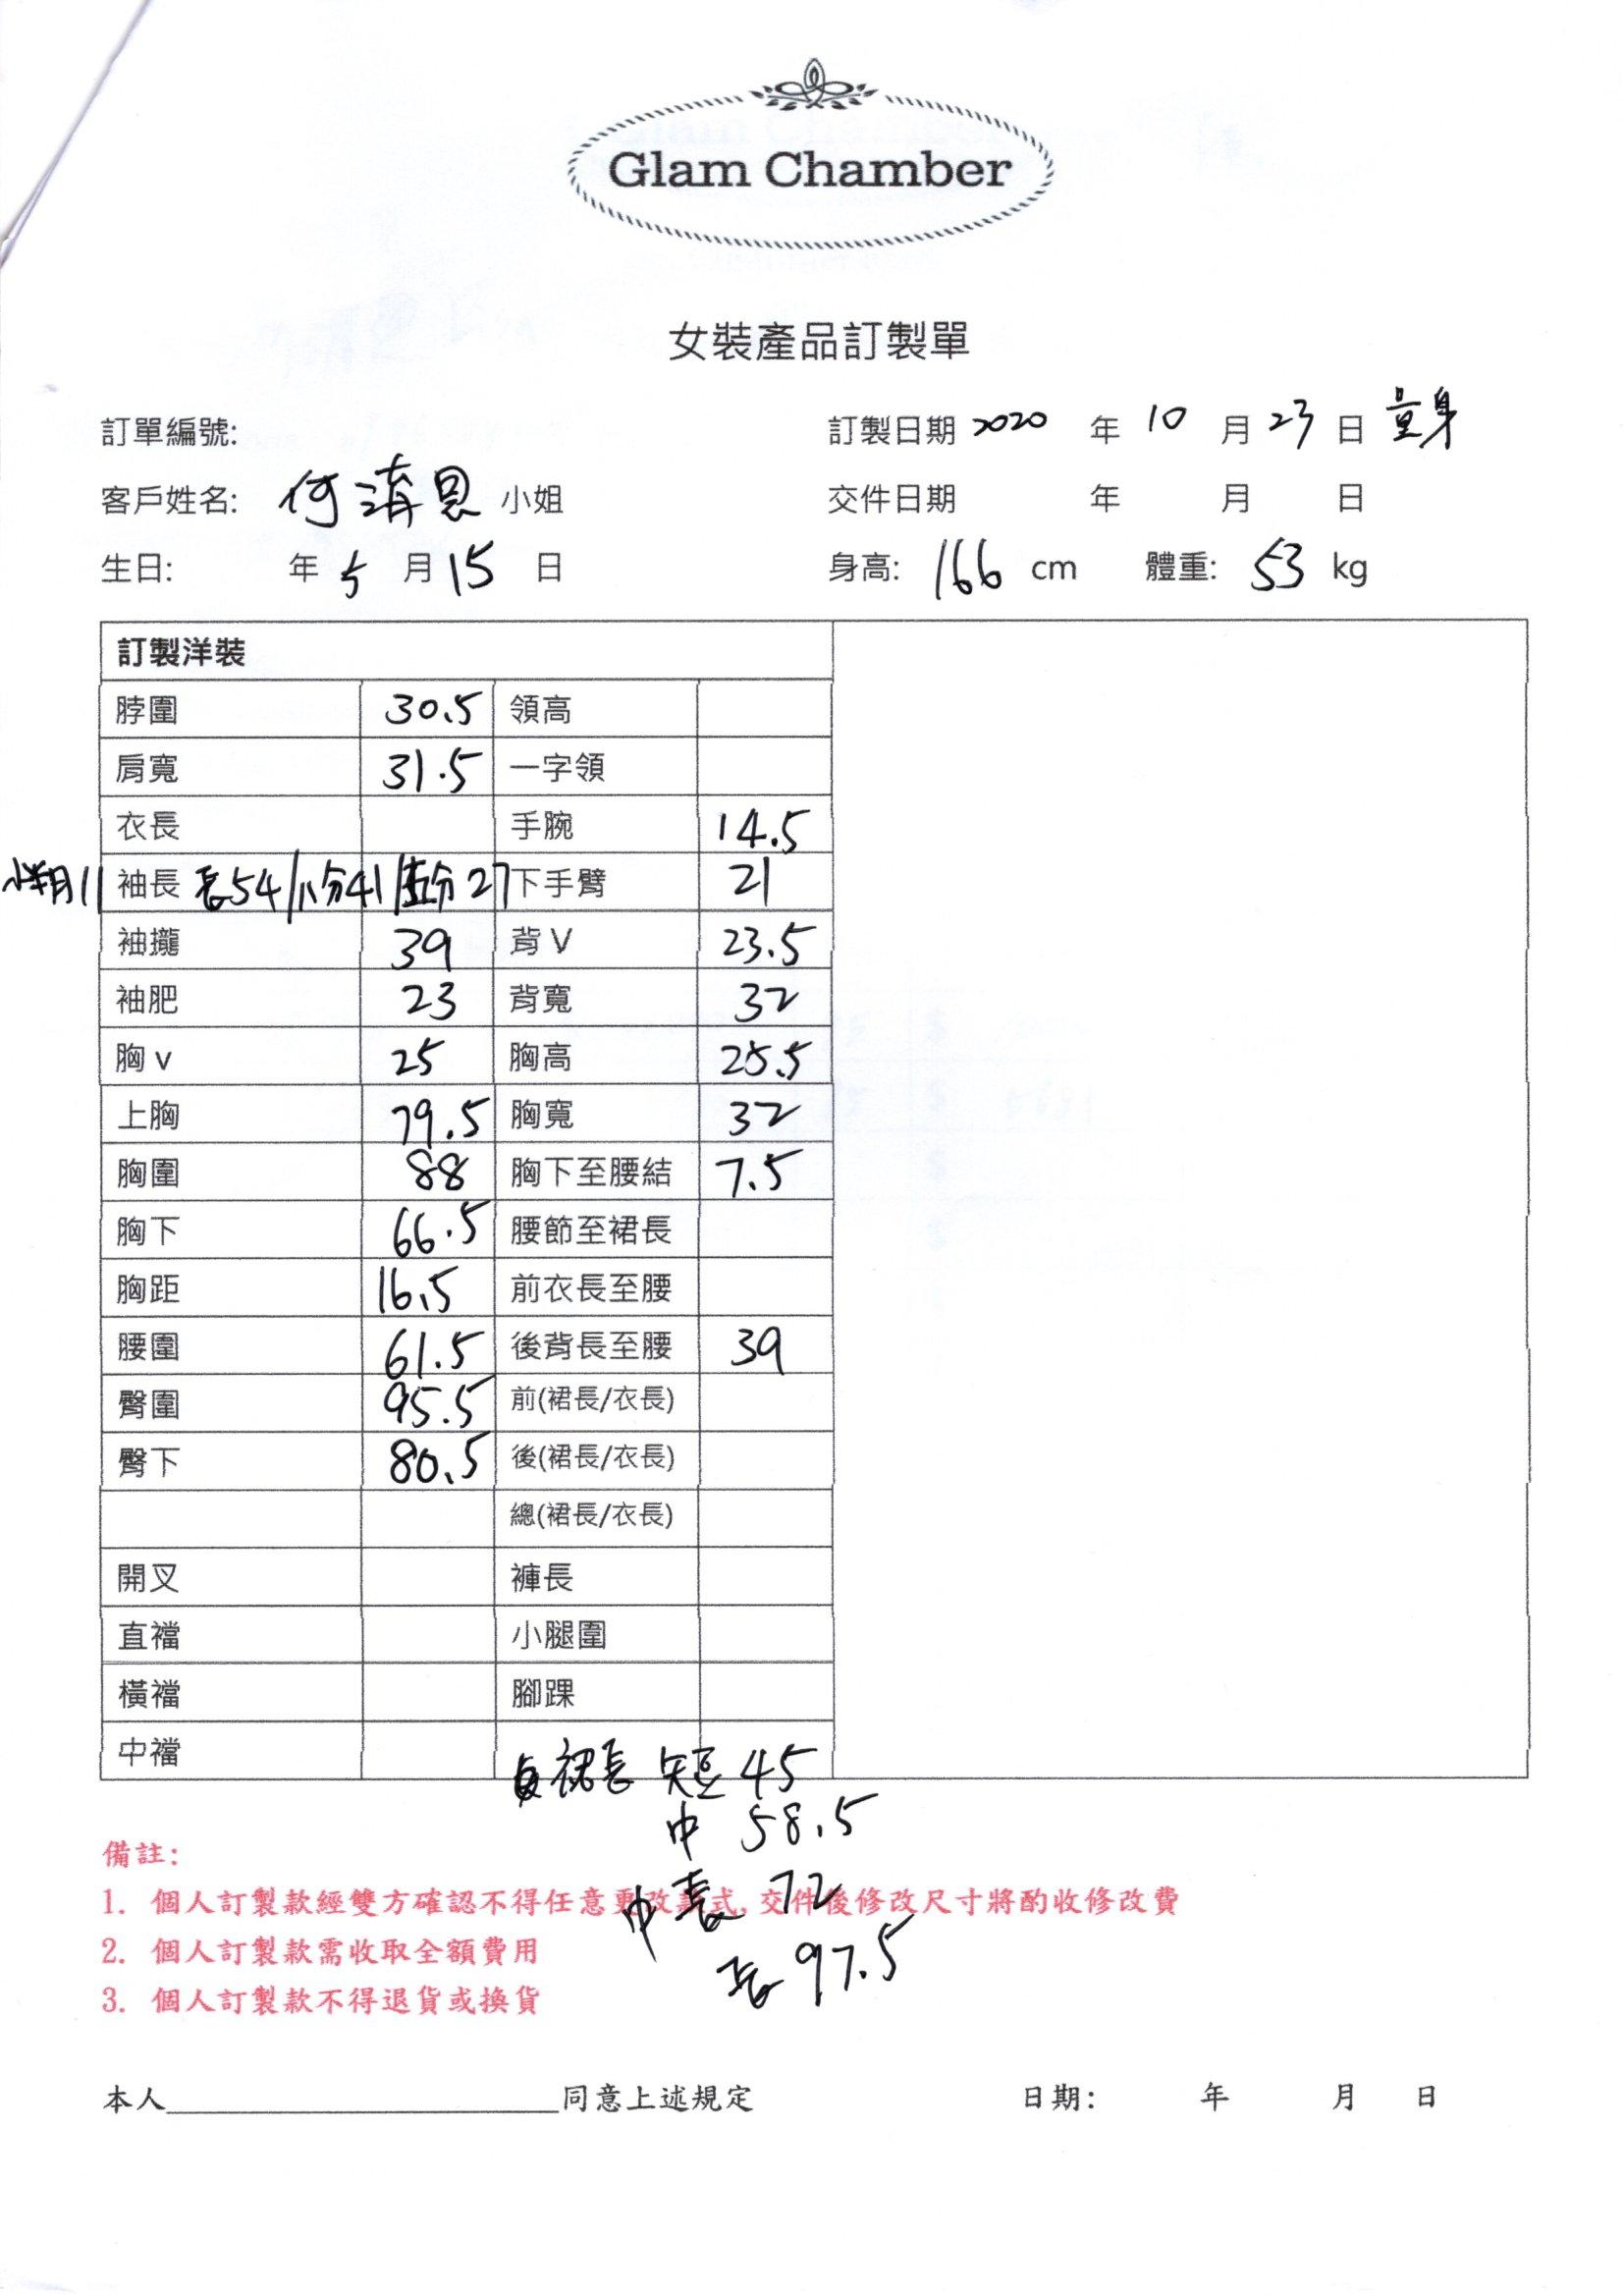 Glam Chamber
女裝產品訂製單
訂單編號: 訂製日期 2020 年 10 月 23 日 量身
客戶姓名: 何 恩 小姐 交件日期 年 月 日
生日: 年 5 月 15 日 身高: 166 cm 體重: 53 kg
訂製洋裝
脖圍 30.5 領高
肩寬 31.5 一字領
衣長 手腕 14.5
11 袖長 長54/八分41/五分27 下手臂 21
袖攏 39 背V 23.5
袖肥 23 背寬 32
胸v 25 胸高 25.5
上胸 79.5 胸寬 32
胸圍 88 胸下至腰結 7.5
胸下 66.5 腰節至裙長
胸距 16.5 前衣長至腰
腰圍 61.5 後背長至腰 39
臀圍 95.5 前(裙長/衣長)
臀下 80.5 後(裙長/衣長)
總(裙長/衣長)
開叉 褲長
直襠 小腿圍
橫襠 腳踝
中襠
裙長 短 45
中 58.5
備註:
中長 72
1. 個人訂製款經雙方確認不得任意更改款式, 交件後修改尺寸將酌收修改費
2. 個人訂製款需收取全額費用
長 97.5
3. 個人訂製款不得退貨或換貨
本人 同意上述規定 日期: 年 月 日